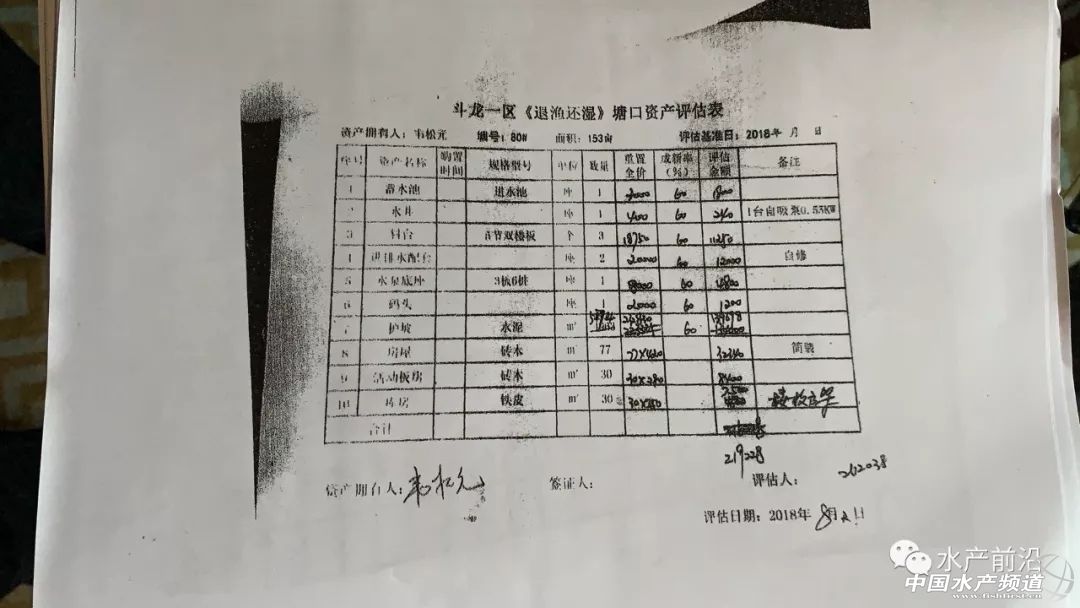 斗龙一区《退渔还湿》塘口资产评估表
资产拥有人：韦松元 塘号：80# 面积：153亩 评估基准日：2018年 月 日
序号 资产名称 购置时间 规格型号 单位 数量 重置全价 成新率（%） 评估金额 备注
1 蓄水池 进水池 座 1 60
2 水井 座 1 400 60 240 1台自吸泵0.55KW
3 节双楼板 个 3 18750 60 11250
4 座 2 20000 60 12000 自修
5 水泵底座 3杭6桩 座 1 8000 60 4800
6 码头 座 1 2000 60 1200
7 护坡 水泥 m² 60
8 房屋 砖木 m² 77 77×420 32340 简装
9 活动板房 砖木 m² 30 30×280 8400
10 库房 铁皮 m² 30
合计
219228
资产拥有人：韦松元 签证人： 评估人： 262038
评估日期：2018年8月21日
水产前沿
中国水产频道
www.fishfirst.cn